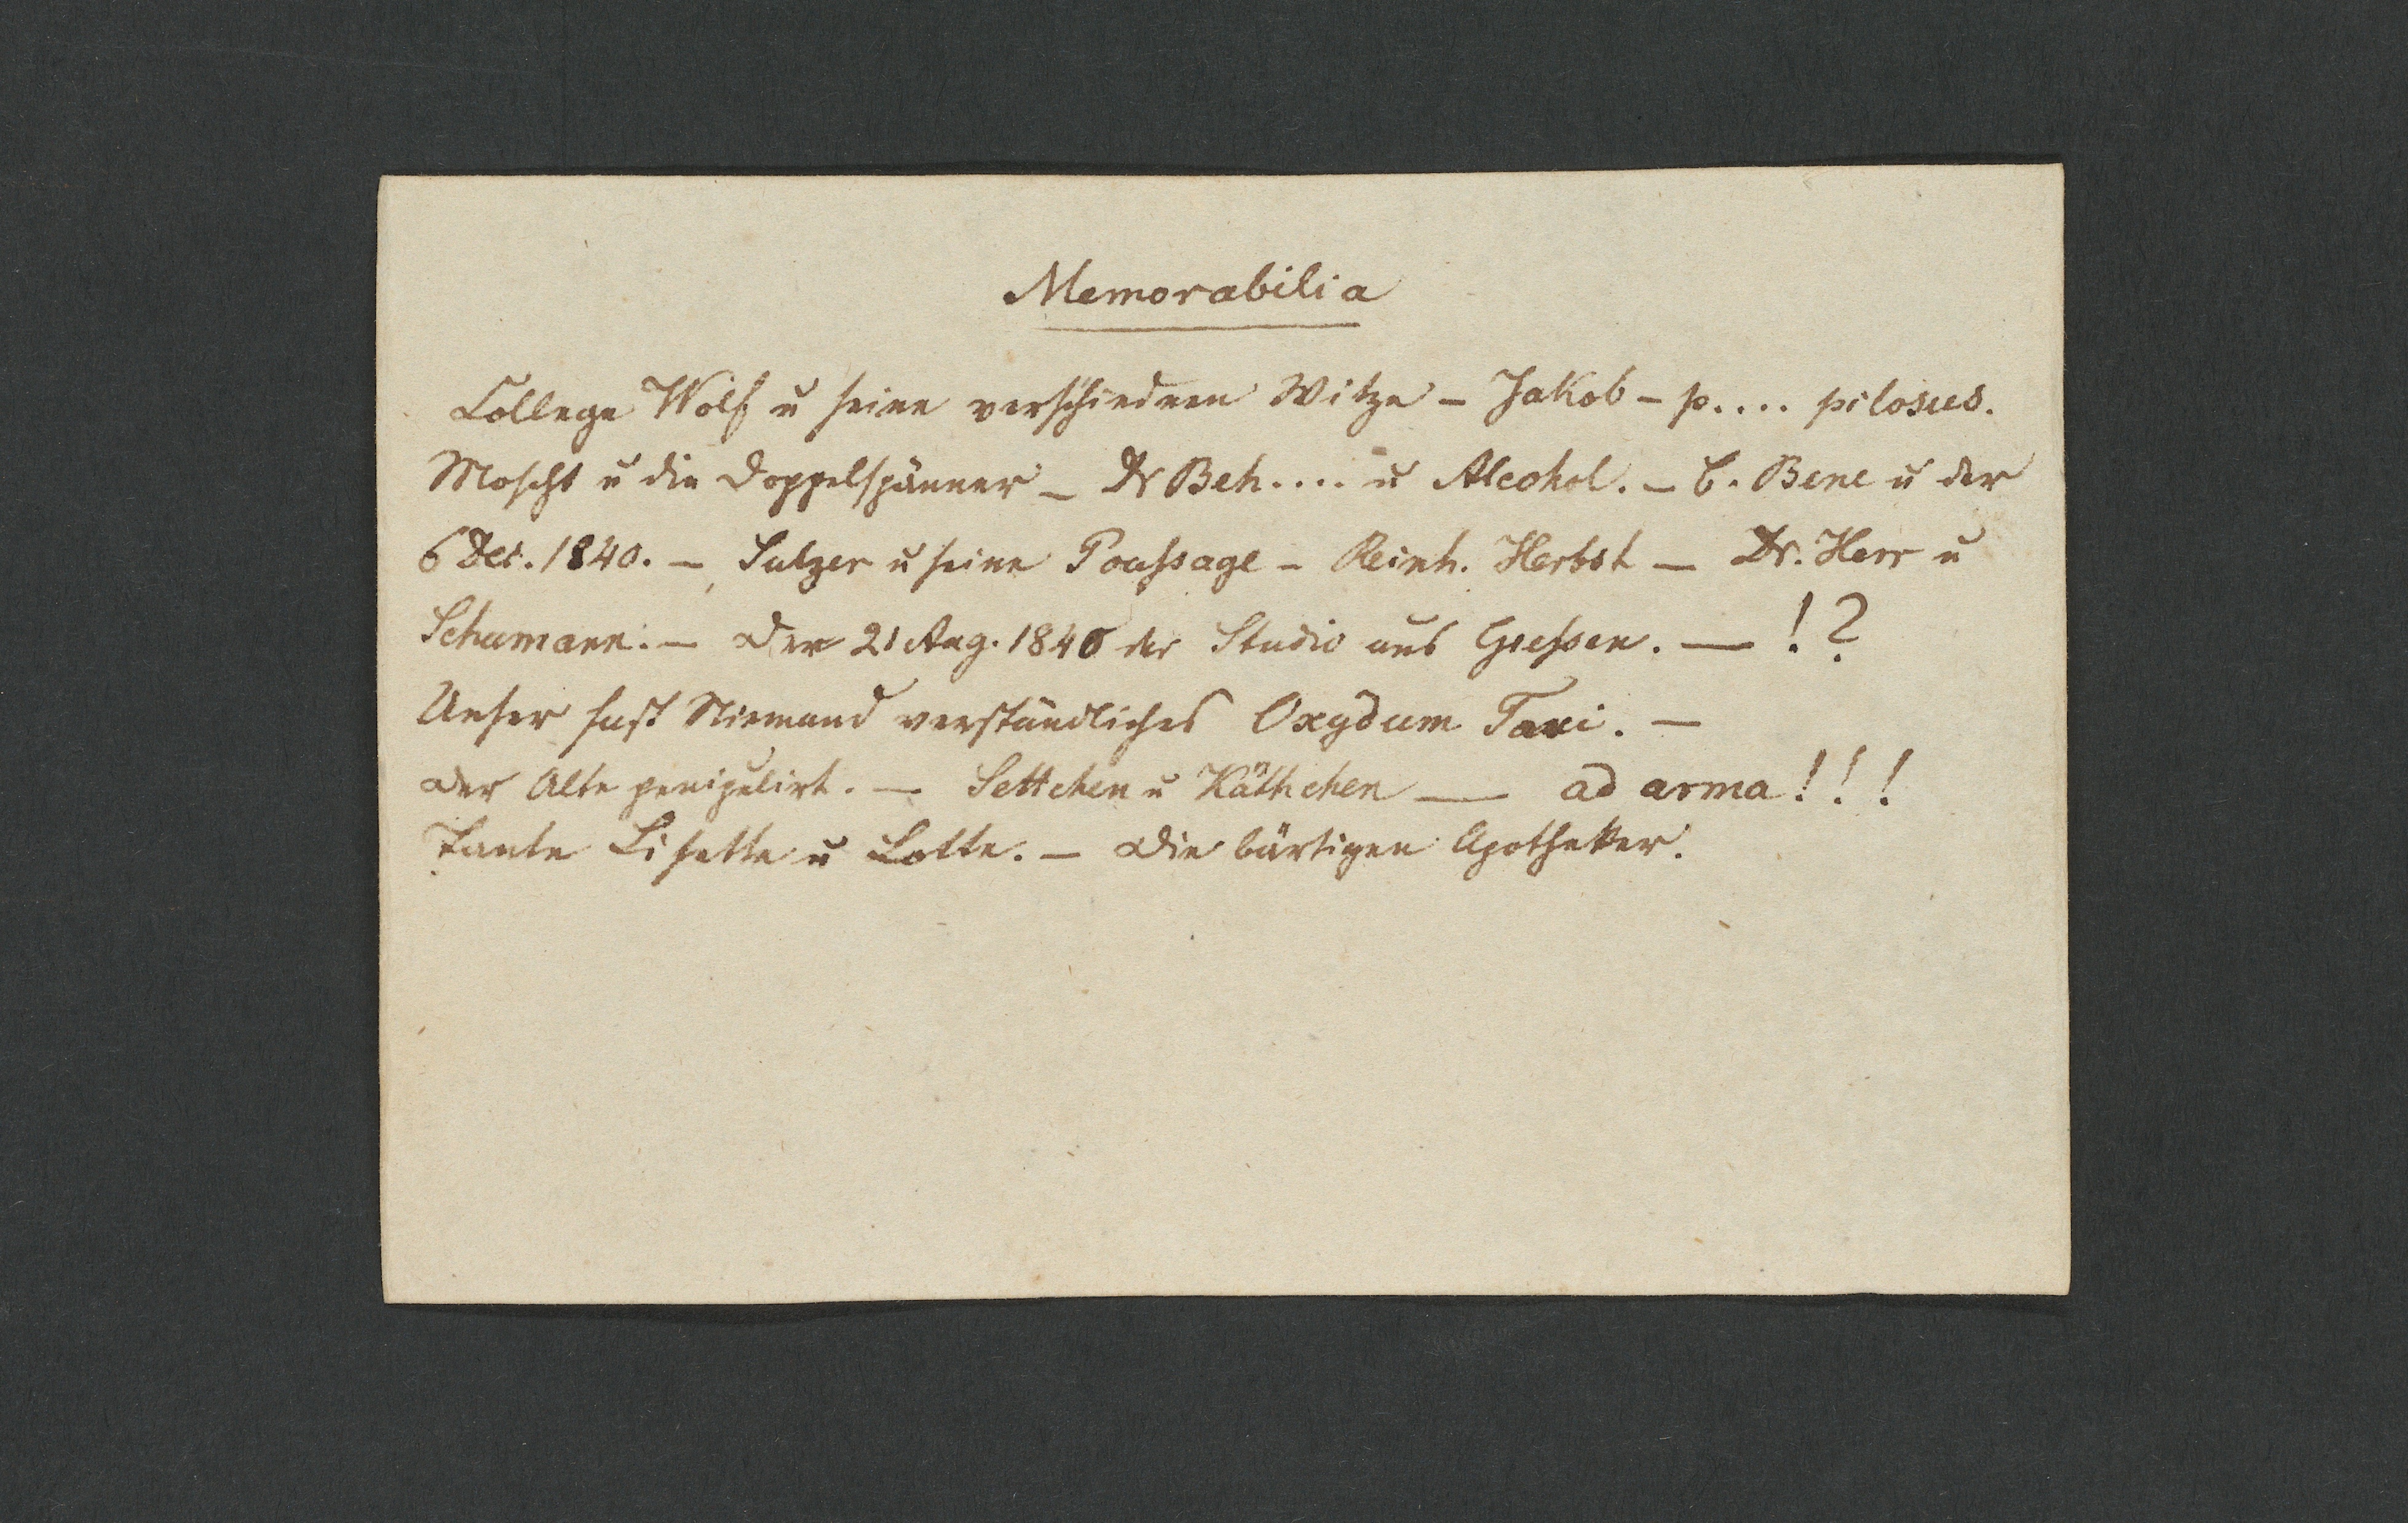 Memorabilia
College Wolf u seine verschiednen Witze – Jakob – p.... pilosus.
Moscht u die Doppelspänner – Dr Beh.... u Alcohol. – C. Bene u der
6 Dec. 1840. – Sulzer u seine Poussage – Reinh. Herbst – Dr. Herr u
Schumann. – Der 21 Aug. 1840 der Studio aus Giessen. — !?
Unser fast Niemand verständliches Oxydum Taxi. –
Der Alte penipulirt. – Settchen u Käthchen — ad arma!!!
Tante Lisette u Lotte. – Die bärtigen Apotheker.